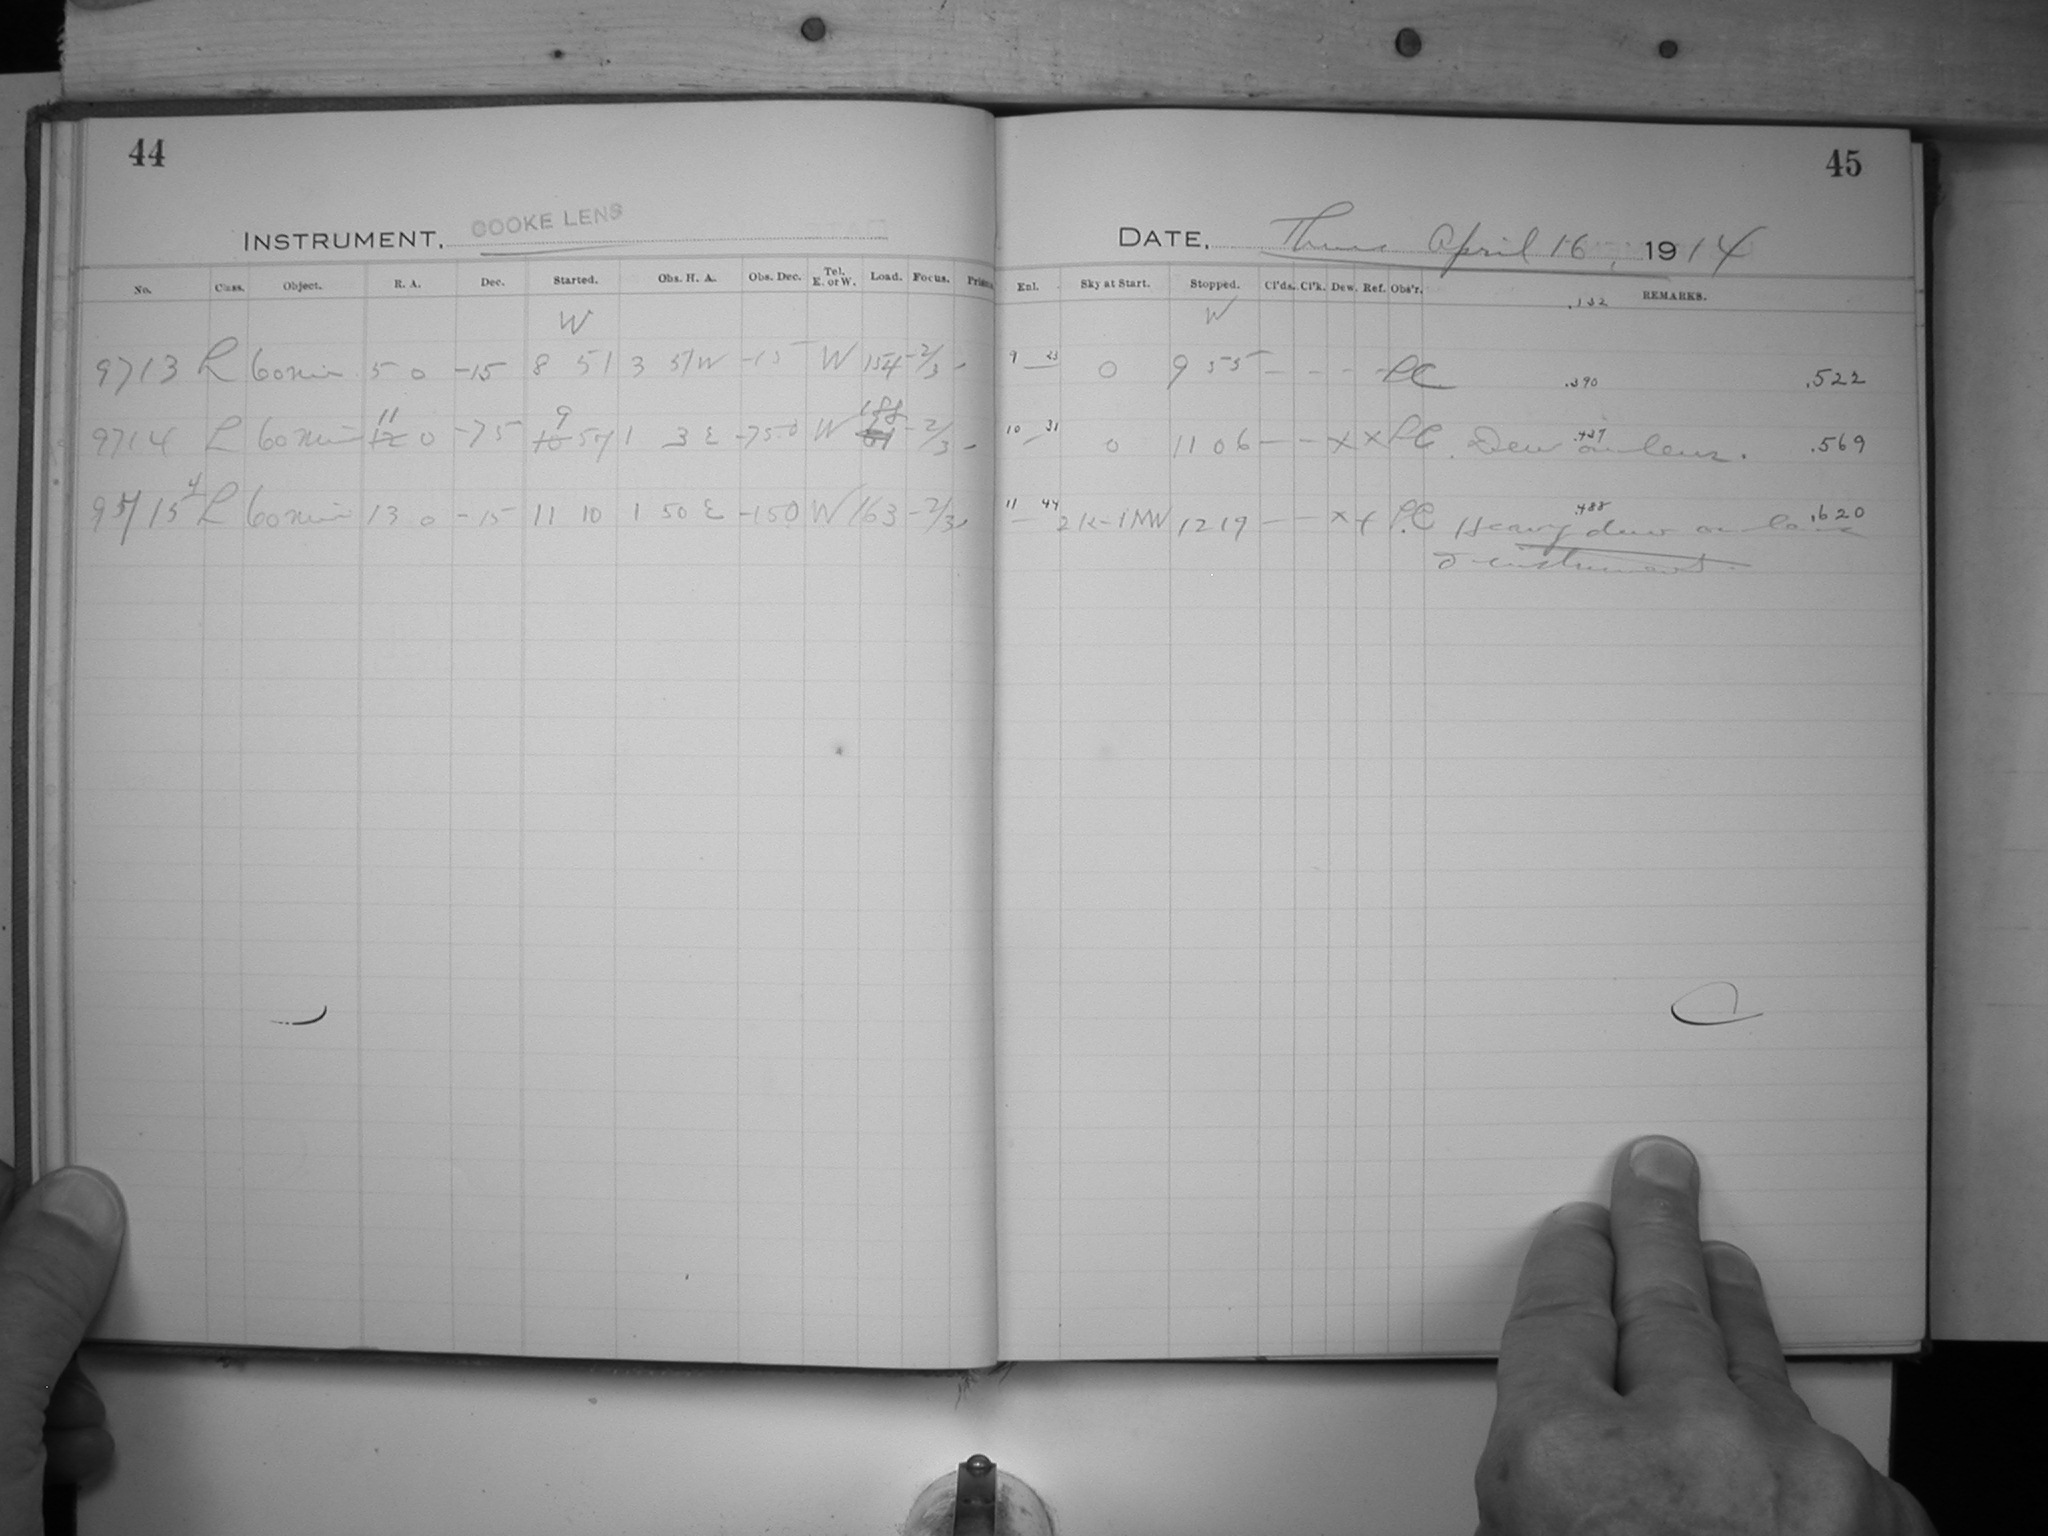 44
INSTRUMENT, COOKE LENS
No. Class. Object. R. A. Dec. Started. Obs. H. A. Obs. Dec. Tel. E. or W. Load. Focus.
W
9713 L 60 min 5 0 -15 8 51 3 51 W -15 W 154 -2/3
11 9 188
9714 L 60 min 12 0 -75 10 57 1 3 E -75 0 W -2/3
4
95/15 L 60 min 13 0 -15 11 10 1 50 E -150 W 163 -2/3
45
DATE, Thurs April 16, 1914
Enl. Sky at Start. Stopped. Cl'ds. Cl'k. Dew. Ref. Obs'r. REMARKS.
W .132
9 23 0 9 55 - - - - LC .390 .522
10 31 0 11 06 - - x x LC Dew on lens. .437 .569
11 44 12 19 - - x x LC Heavy dew on lens .488 .620
& instrument.